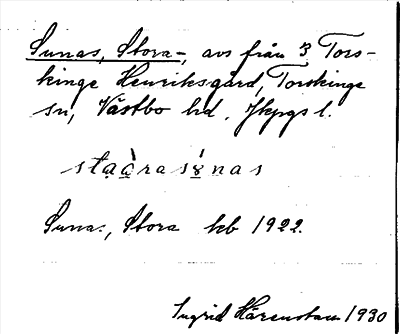 Sunas, Stora-, avs från 3 Tors-
kinge Henriksgård, Torskinge
sn, Västbo hd. Jkpgs l.
Sunas, Stora kb 1922.
Ingrid Härenstam 1930